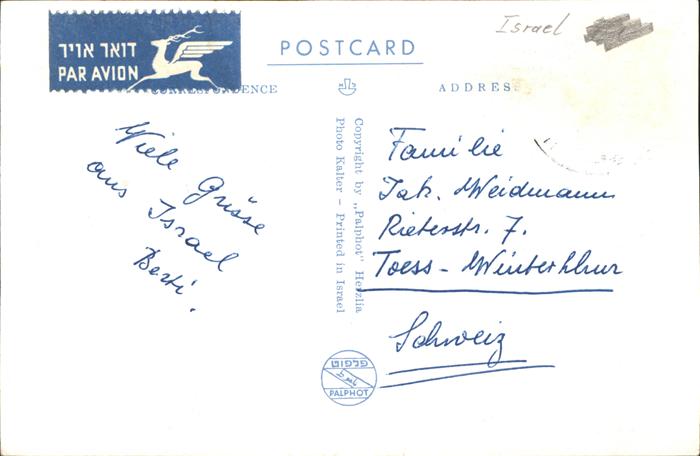 דואר אויר
PAR AVION
POSTCARD
Israel
CORRESPONDENCE
ADDRESS
Viele Grüsse
aus Israel
Berti.
Copyright by „Palphot" Herzlia
Photo Kalter – Printed in Israel
Familie
Jak. Weidmann
Rieterstr. 7.
Toess - Winterthur
Schweiz
פלפוט
PALPHOT